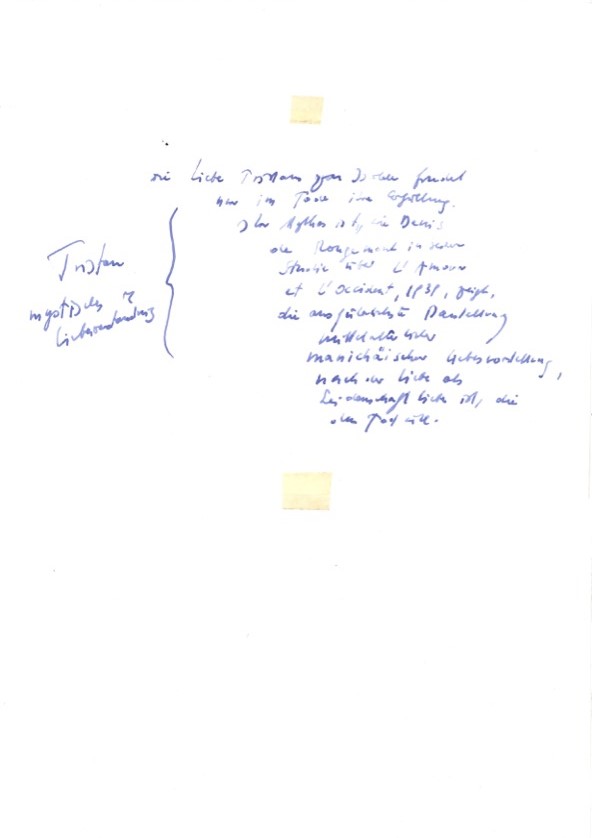 die Liebe Tristans zu Isolde findet
nur im Tode ihre Erfüllung.
Der Mythos ist, wie Denis
de Rougemont in seiner
Studie über L'Amour
et L'Occident, 1939, zeigt,
die ausführlichste Darstellung
mittelalterlicher
manichäischer Liebesvorstellung,
nach der Liebe als
Leidenschaft Liebe ist, die
den Tod will.
Tristan
mystisches
Liebesverständnis